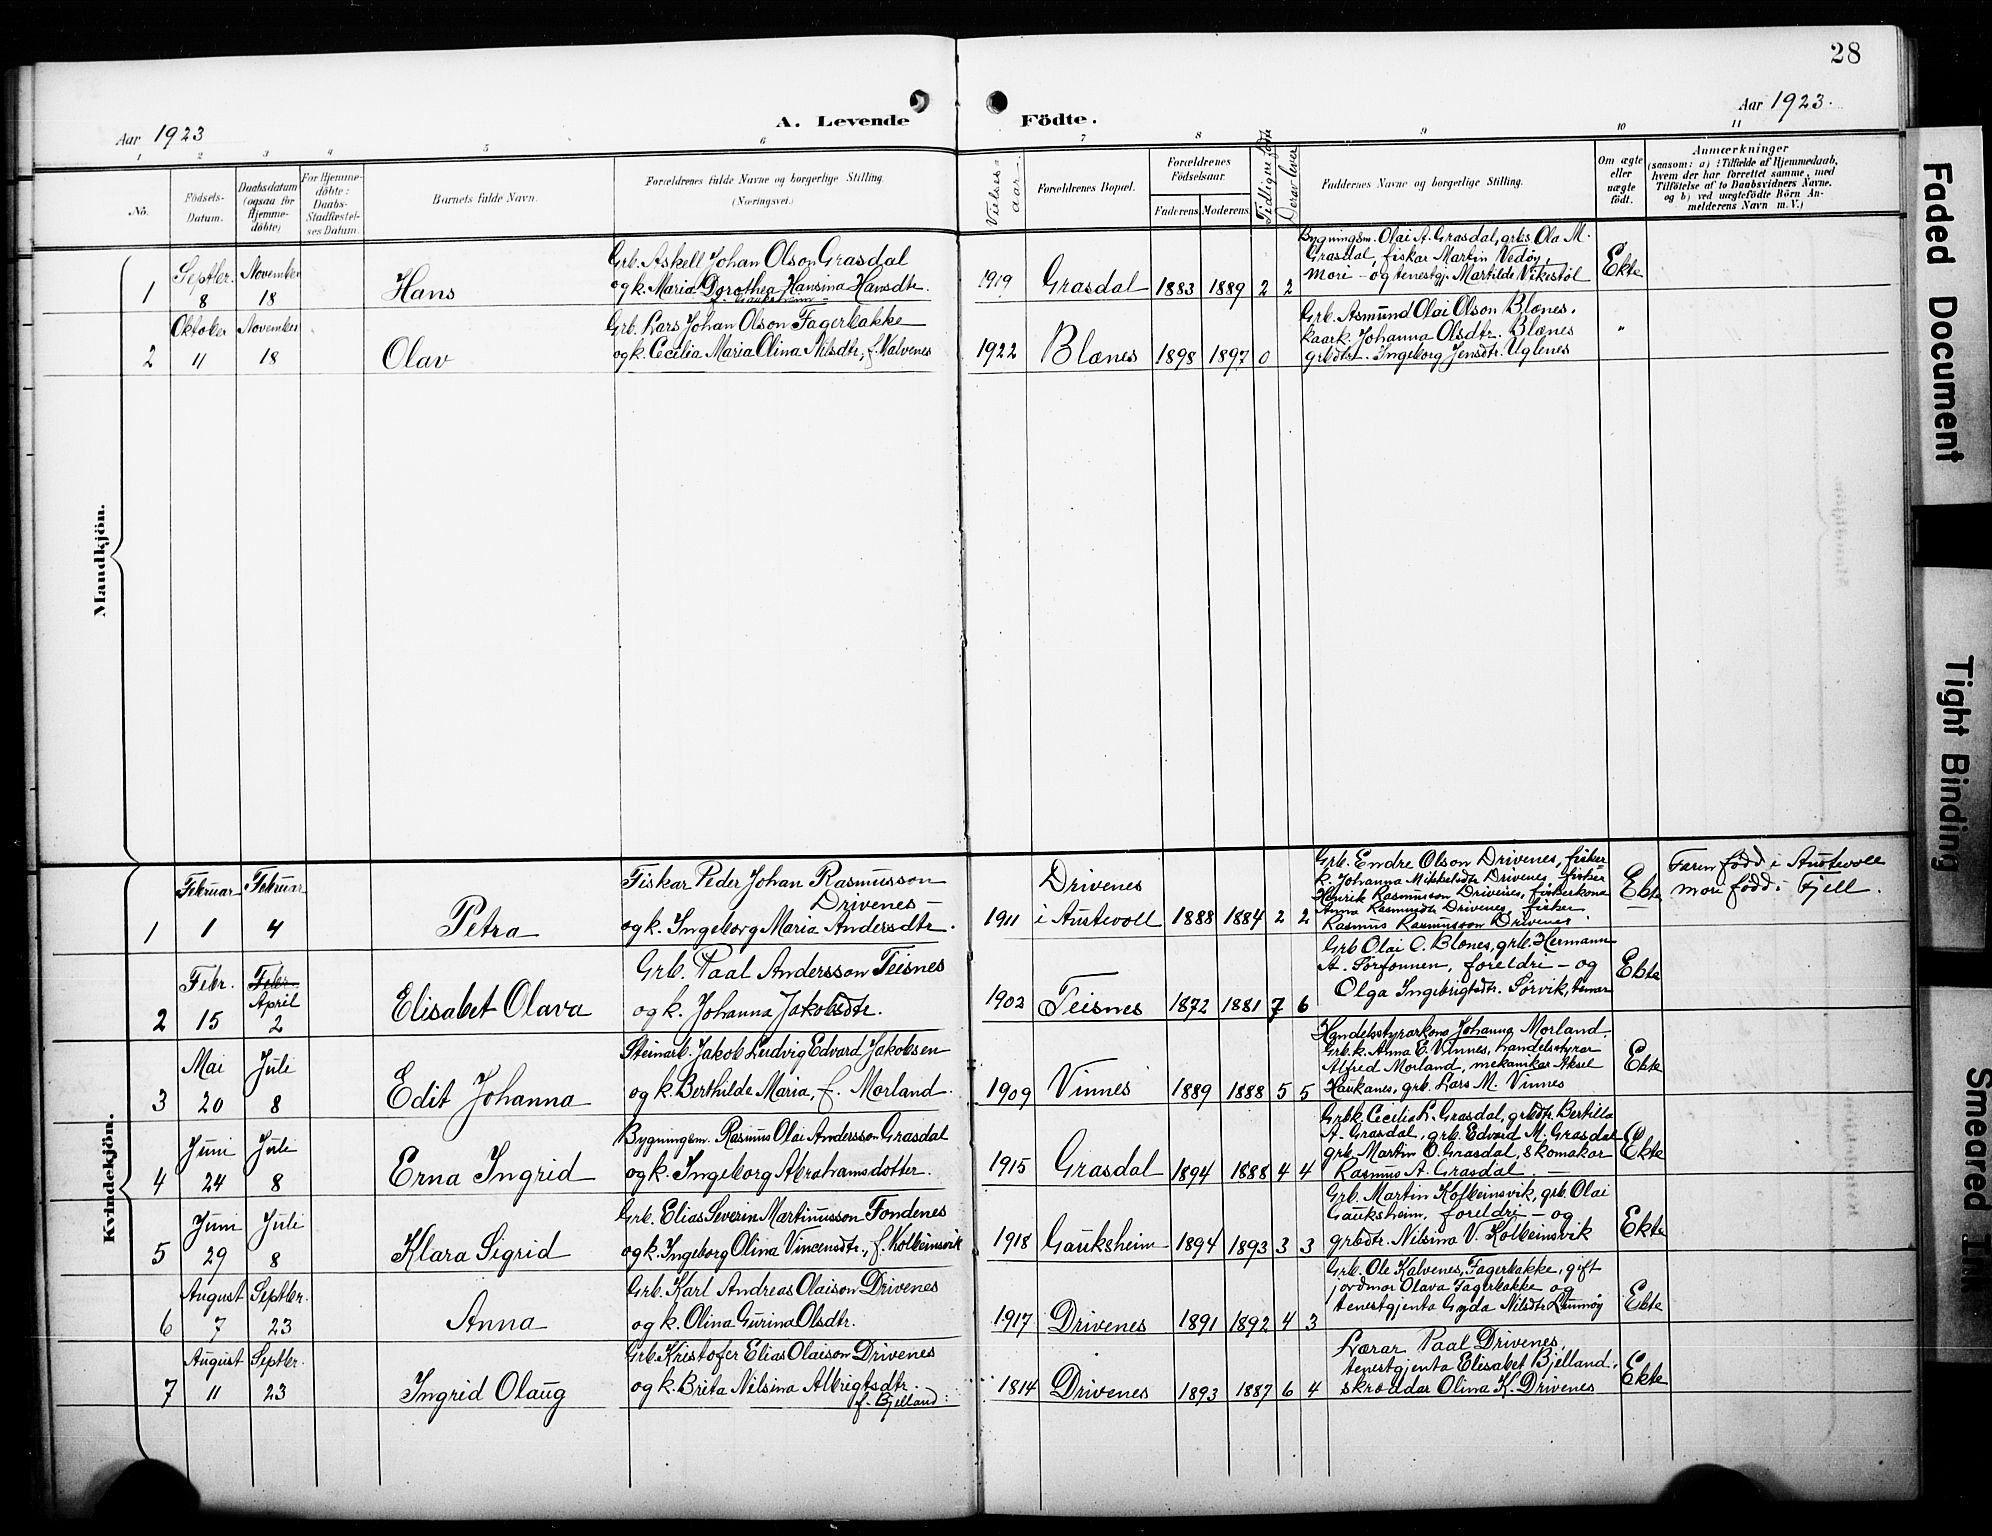 28
Aar 1923
A. Levende
Födte.
Aar 1923.
1 2 3 4 5 6 7 8 9 10 11
No.
Födsels-
Datum.
Daabsdatum
(ogsaa for
Hjemme-
döbte)
For Hjemme-
döbte:
Daabs-
Stadfæstel-
ses Datum.
Barnets fulde Navn.
Forældrenes fulde Navne og borgerlige Stilling.
(Næringsvei.)
Vielses
aar.
Forældrenes Bopæl.
Forældrenes
Födselsaar.
Faderens. Moderens.
Tidligere födte
Derav lever
Faddernes Navne og borgerlige Stilling.
Om ægte
eller
uægte
födt.
Anmærkninger
(saasom: a) i Tilfælde af Hjemmedaab,
hvem der har forrettet samme, med
Tilföielse af to Daabsvidners Navne.
og b) ved uægtefödte Börn An-
melderens Navn m. V.)
Mandkjön.
1
Septbr.
8
November
18
Hans
Grb. Askell Johan Olson Grasdal
og k. Maria Dorothea Hansina Hansdtr.
f. Gauksheim
1919
Grasdal
1883
1889
2
2
Bygningsm. Olai A. Grasdal, grb.s Ola M.
Grasdal, fiskar Martin Vedöy,
mori - og tenestgj. Martilde Vikestöl
Ekte
2
Oktober
11
November
18
Olav
Grb. Lars Johan Olson Fagerbakke
og k. Cecilia Maria Olina Nilsdtr, f. Kalvenes
1922
Blænes
1898
1897
0
Grb. Asmund Olai Olson Blænes,
kaark. Johanna Olsdtr. Blænes
grbdtr. Ingeborg Jensdtr. Uglenes
"
Kvindekjön.
1
Februar
1
Februar
4
Petra
Fiskar Peder Johan Rasmusson
Drivenes -
og k. Ingeborg Maria Andersdtr.
1911
Drivenes
i Austevoll
1888
1884
2
2
Grb. Endre Olson Drivenes, fisker
k. Johanna Mikkelsdtr Drivenes, fisker
Henrik Rasmusson Drivenes, fiskerkona
Anna Rasmusdtr Drivenes, fisker
Rasmus Rasmusson Drivenes.
Ekte
Faren född i Austevoll
mori född i Fjell.
2
Febr.
15
Febr.
April
2
Elisabet Olava
Grb. Paal Andersson Teisnes
og k. Johanna Jakobsdtr.
1902
Teisnes
1872
1881
7
6
Grb Olai O. Blænes, grb. Hermann
A. Torfonnen, foreldri - og
Olga Ingebrigtsdtr. Sörvik,
Ekte
3
Mai
20
Juli
8
Edit Johanna
Steinarb. Jakob Ludvig Edvard Jakobsen
og k. Berthilde Maria, f. Morland.
1909
Vinnes
1889
1888
5
5
Handelsstyrarkona Johanna Morland.
Grb. k. Anna E. Vinnes, handelsstyrar
Alfred Morland, mekanikar Aksel
Haukanes, grb. Lars M. Vinnes
Ekte
4
Juni
24
Juli
8
Erna Ingrid
Bygningsm. Rasmus Olai Andersson Grasdal
og k. Ingeborg Abrahamsdotter.
1915
Grasdal
1894
1888
4
4
Grbk. Cecilia L. Grasdal, grbdtr. Bertilla
A. Grasdal, grb. Edvard M. Grasdal
grb. Martin O. Grasdal, skomakar
Rasmus A. Grasdal.
Ekte
5
Juni
29
Juli
8
Klara Sigrid
Grb. Elias Severin Martinusson Fondenes
og k. Ingeborg Olina Vincensdtr., f. Kolbeinsvik
1918
Gauksheim
1894
1893
3
3
Grb. Martin Kolbeinsvik, grb. Olai
Gauksheim, foreldri - og
grbdtr. Nilsina V. Kolbeinsvik
Ekte
6
August
7
Septbr.
23
Anna
Grb. Karl Andreas Olaison Drivenes
og k. Olina Gurina Olsdtr.
1917
Drivenes
1891
1892
4
3
Grb. Ole Kalvenes, Fagerbakke, gift
jordmor Olava Fagerbakke og
tenestgjenta Gyda Nilsdtr
Ekte
7
August
11
Septbr.
23
Ingrid Olaug
Grb. Kristofer Elias Olaison Drivenes
og k. Brita Nilsina Albrigtsdtr.
f. Bjelland.
1814
Drivenes
1893
1887
6
4
Lærar Paal Drivenes,
tenestgjenta Elisabet Bjelland,
skræddar Olina K. Drivenes
Ekte
Faded Document
Tight Binding
Smeared Ink